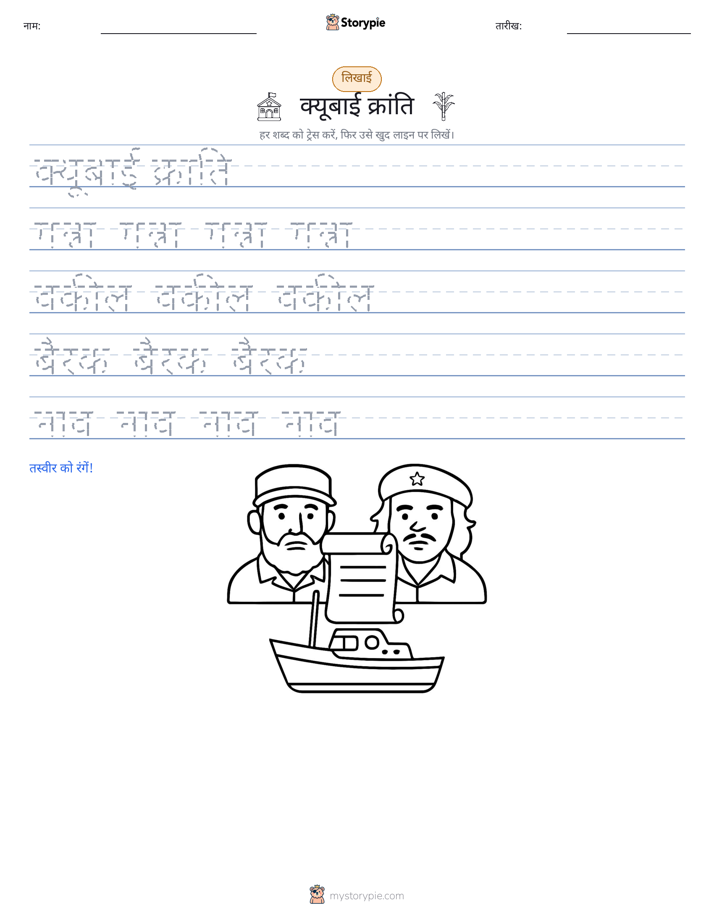 नाम:
Storypie
तारीख:
लिखाई
क्यूबाई क्रांति
हर शब्द को ट्रेस करें, फिर उसे खुद लाइन पर लिखें।
क्यूबाई क्रांति
गन्ना गन्ना गन्ना गन्ना
वकील वकील वकील
बैरक बैरक बैरक
नाव नाव नाव नाव
तस्वीर को रंगें!
mystorypie.com